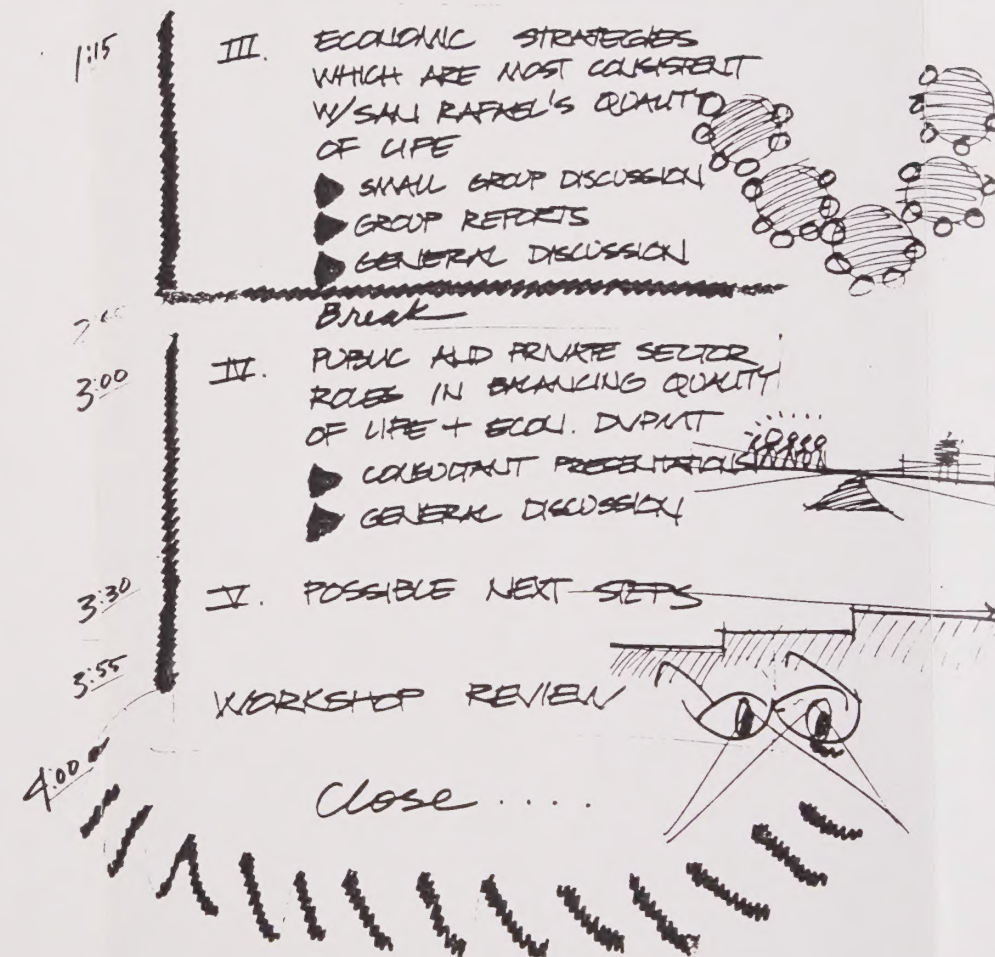 1:15 III. ECONOMIC STRATEGIES
WHICH ARE MOST CONSISTENT
W/SAN RAFAEL'S QUALITY
OF LIFE
SMALL GROUP DISCUSSION
GROUP REPORTS
GENERAL DISCUSSION
Break
3:00 IV. PUBLIC AND PRIVATE SECTOR
ROLES IN BALANCING QUALITY
OF LIFE + ECON. DVPMT
CONSULTANT PRESENTATIONS
GENERAL DISCUSSION
3:30 V. POSSIBLE NEXT STEPS
3:55
WORKSHOP REVIEW
4:00
Close .....